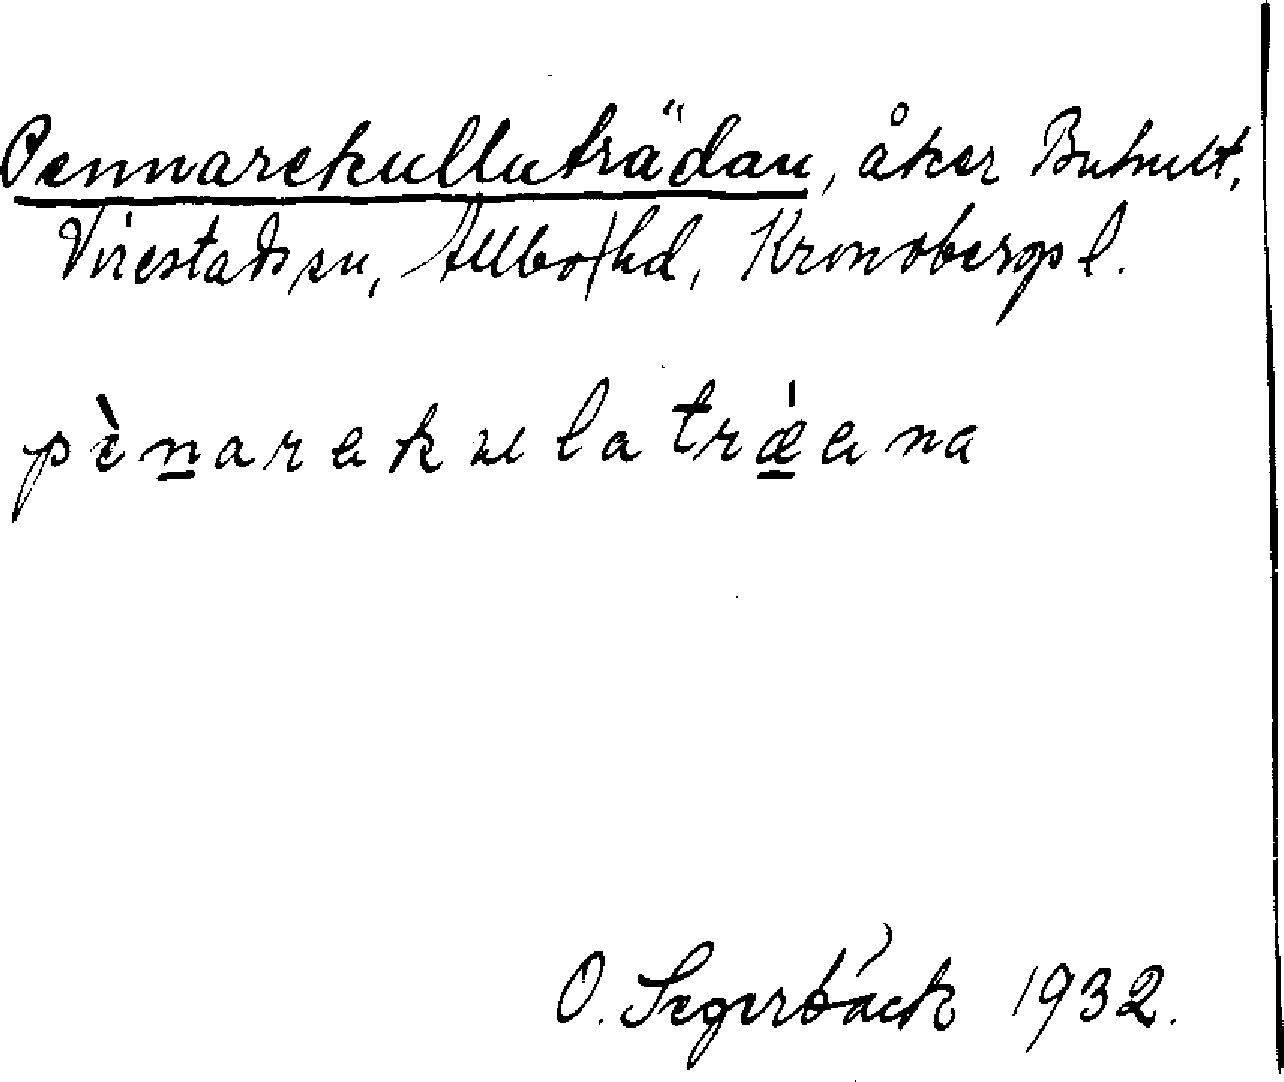 Pennarekullaträdan, åker Buhult,
Virestads sn, Allbo hd, Kronobergs l.
pènarekulatrǽena
O. Segerbäck 1932.